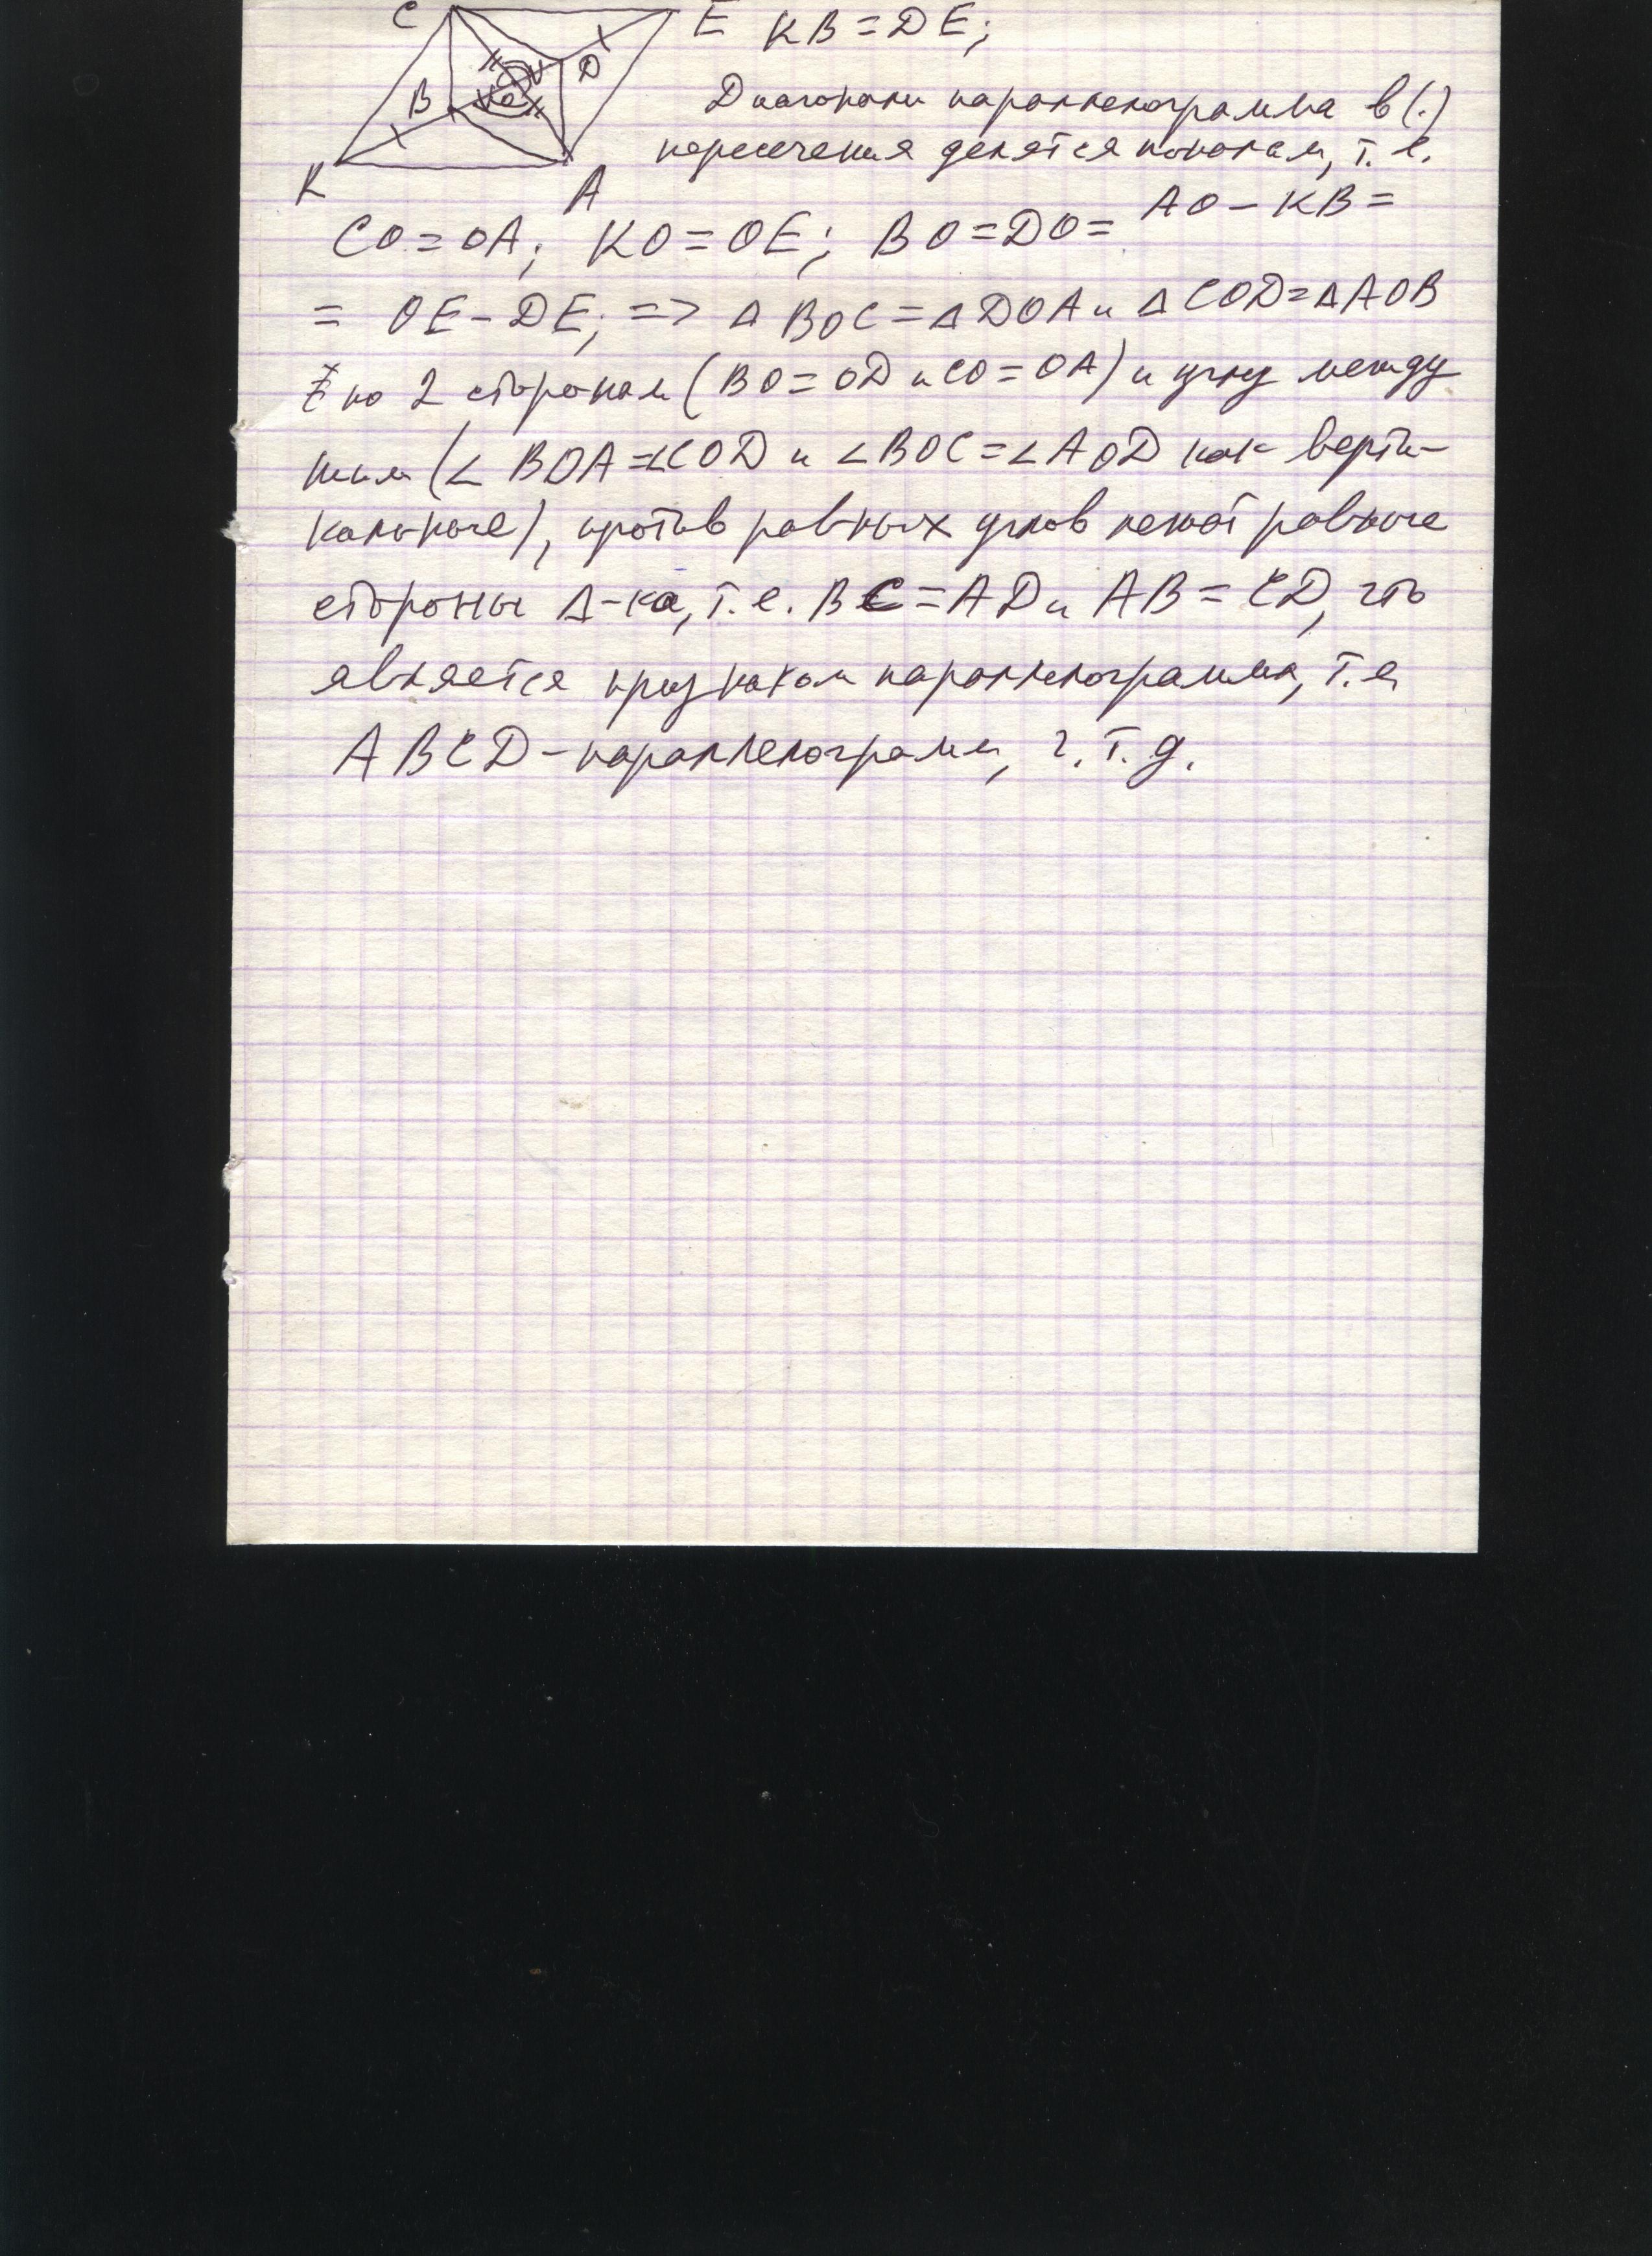 C E KB = DE;
B O D
Диагонали параллелограмма в (·)
K A пересечения делятся пополам, т. е.
CO = OA; KO = OE; BO = DO = AO - KB =
= OE - DE; => Δ BOC = Δ DOA и Δ COD = Δ AOB
по 2 сторонам (BO = OD и CO = OA) и углу между
ними (∠ BOA = ∠COD и ∠BOC = ∠AOD как верти-
кальные), против равных углов лежат равные
стороны Δ-ка, т. е. BC = AD и AB = CD, что
является признаком параллелограмма, т. е
ABCD - параллелограмм, ч. т. д.